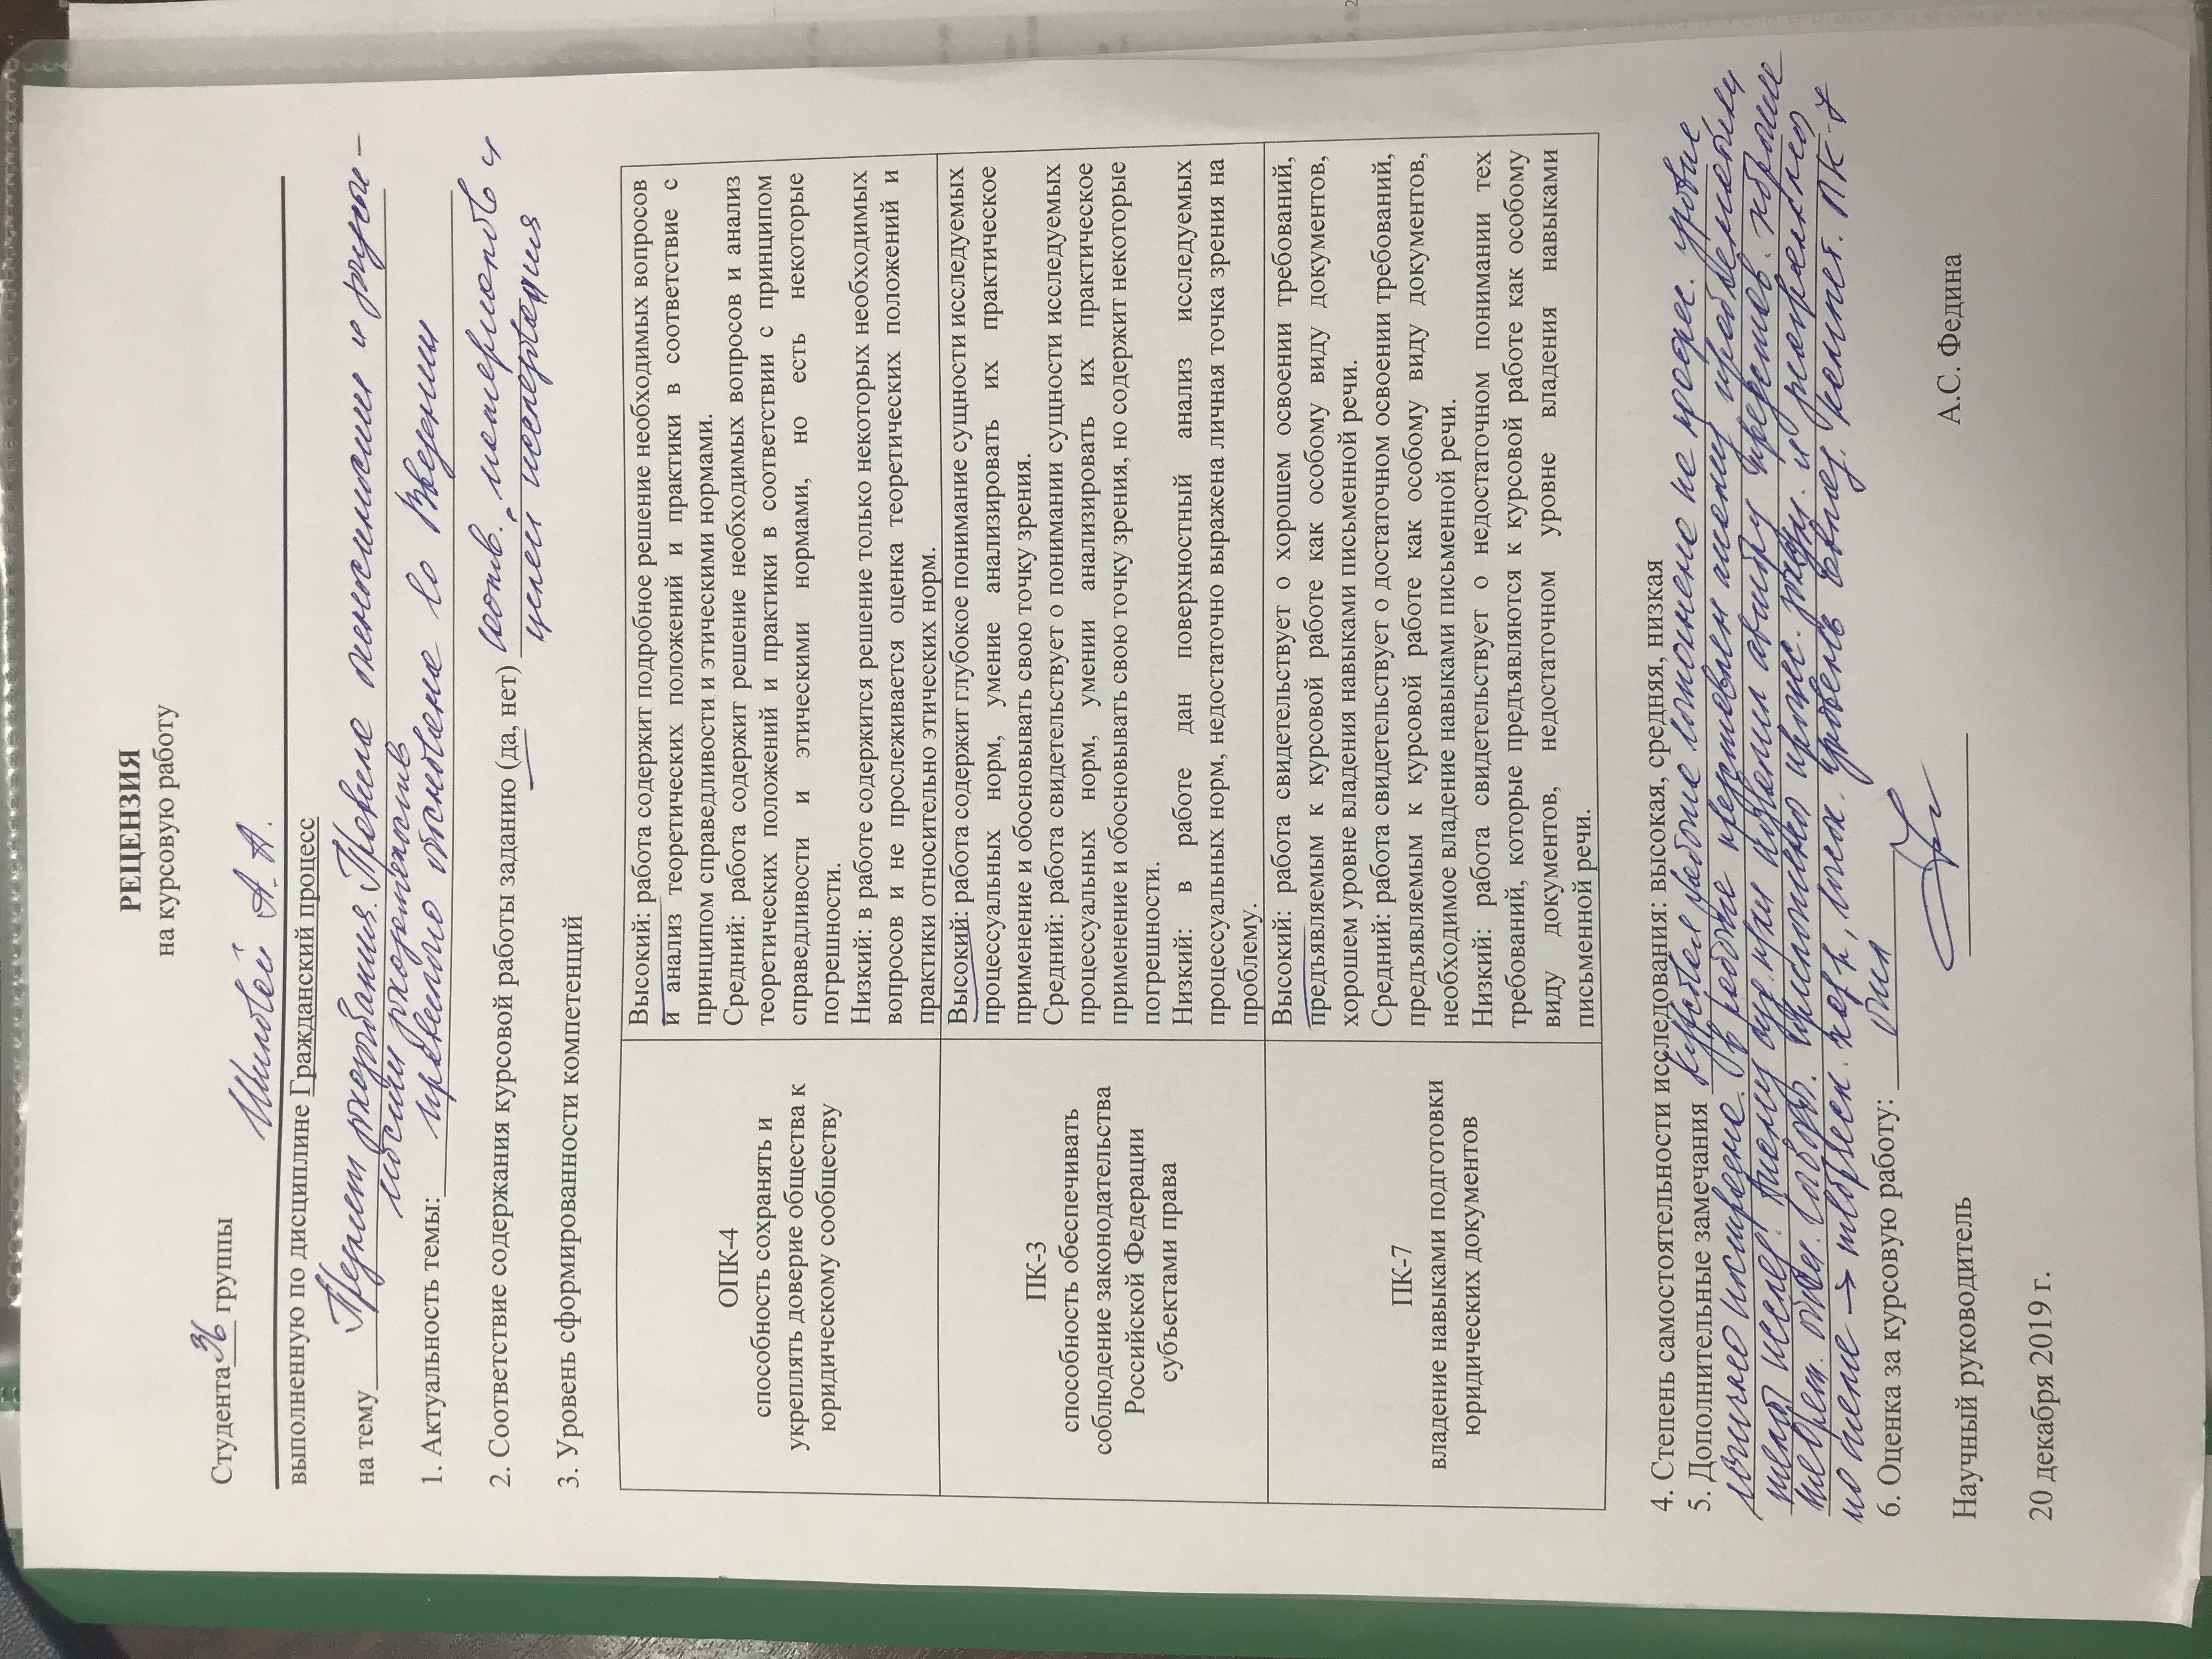 РЕЦЕНЗИЯ
на курсовую работу
Студента 36 группы
А. А.
выполненную по дисциплине Гражданский процесс
на тему Предмет доказывания. Правила относимости и
допустимости доказательств
1. Актуальность темы: правильно обоснована во Введении
2. Соответствие содержания курсовой работы заданию (да, нет) соотв. и
целей исследования
3. Уровень сформированности компетенций
ОПК-4
способность сохранять и
укреплять доверие общества к
юридическому сообществу
Высокий: работа содержит подробное решение необходимых вопросов
и анализ теоретических положений и практики в соответствие с
принципом справедливости и этическими нормами.
Средний: работа содержит решение необходимых вопросов и анализ
теоретических положений и практики в соответствии с принципом
справедливости и этическими нормами, но есть некоторые
погрешности.
Низкий: в работе содержится решение только некоторых необходимых
вопросов и не прослеживается оценка теоретических положений и
практики относительно этических норм.
ПК-3
способность обеспечивать
соблюдение законодательства
Российской Федерации
субъектами права
Высокий: работа содержит глубокое понимание сущности исследуемых
процессуальных норм, умение анализировать их практическое
применение и обосновывать свою точку зрения.
Средний: работа свидетельствует о понимании сущности исследуемых
процессуальных норм, умении анализировать их практическое
применение и обосновывать свою точку зрения, но содержит некоторые
погрешности.
Низкий: в работе дан поверхностный анализ исследуемых
процессуальных норм, недостаточно выражена личная точка зрения на
проблему.
ПК-7
владение навыками подготовки
юридических документов
Высокий: работа свидетельствует о хорошем освоении требований,
предъявляемым к курсовой работе как особому виду документов,
хорошем уровне владения навыками письменной речи.
Средний: работа свидетельствует о достаточном освоении требований,
предъявляемым к курсовой работе как особому виду документов,
необходимое владение навыками письменной речи.
Низкий: работа свидетельствует о недостаточном понимании тех
требований, которые предъявляются к курсовой работе как особому
виду документов, недостаточном уровне владения навыками
письменной речи.
4. Степень самостоятельности исследования: высокая, средняя, низкая
5. Дополнительные замечания Курсовая работа выполнена на
В работе
уровень ПК-7
6. Оценка за курсовую работу:
Научный руководитель А.С. Федина
20 декабря 2019 г.